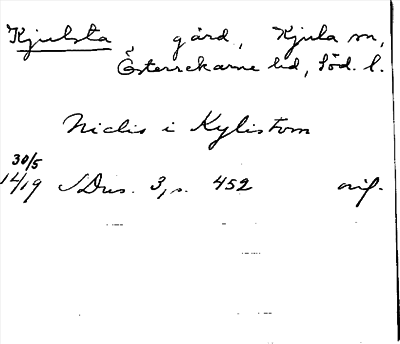 Kjulsta gård, Kjula sn,
Österrekarne hd, Söd. l.
Niclis i Kylistom
30/5
1419 SDns. 3, s. 452 orig.